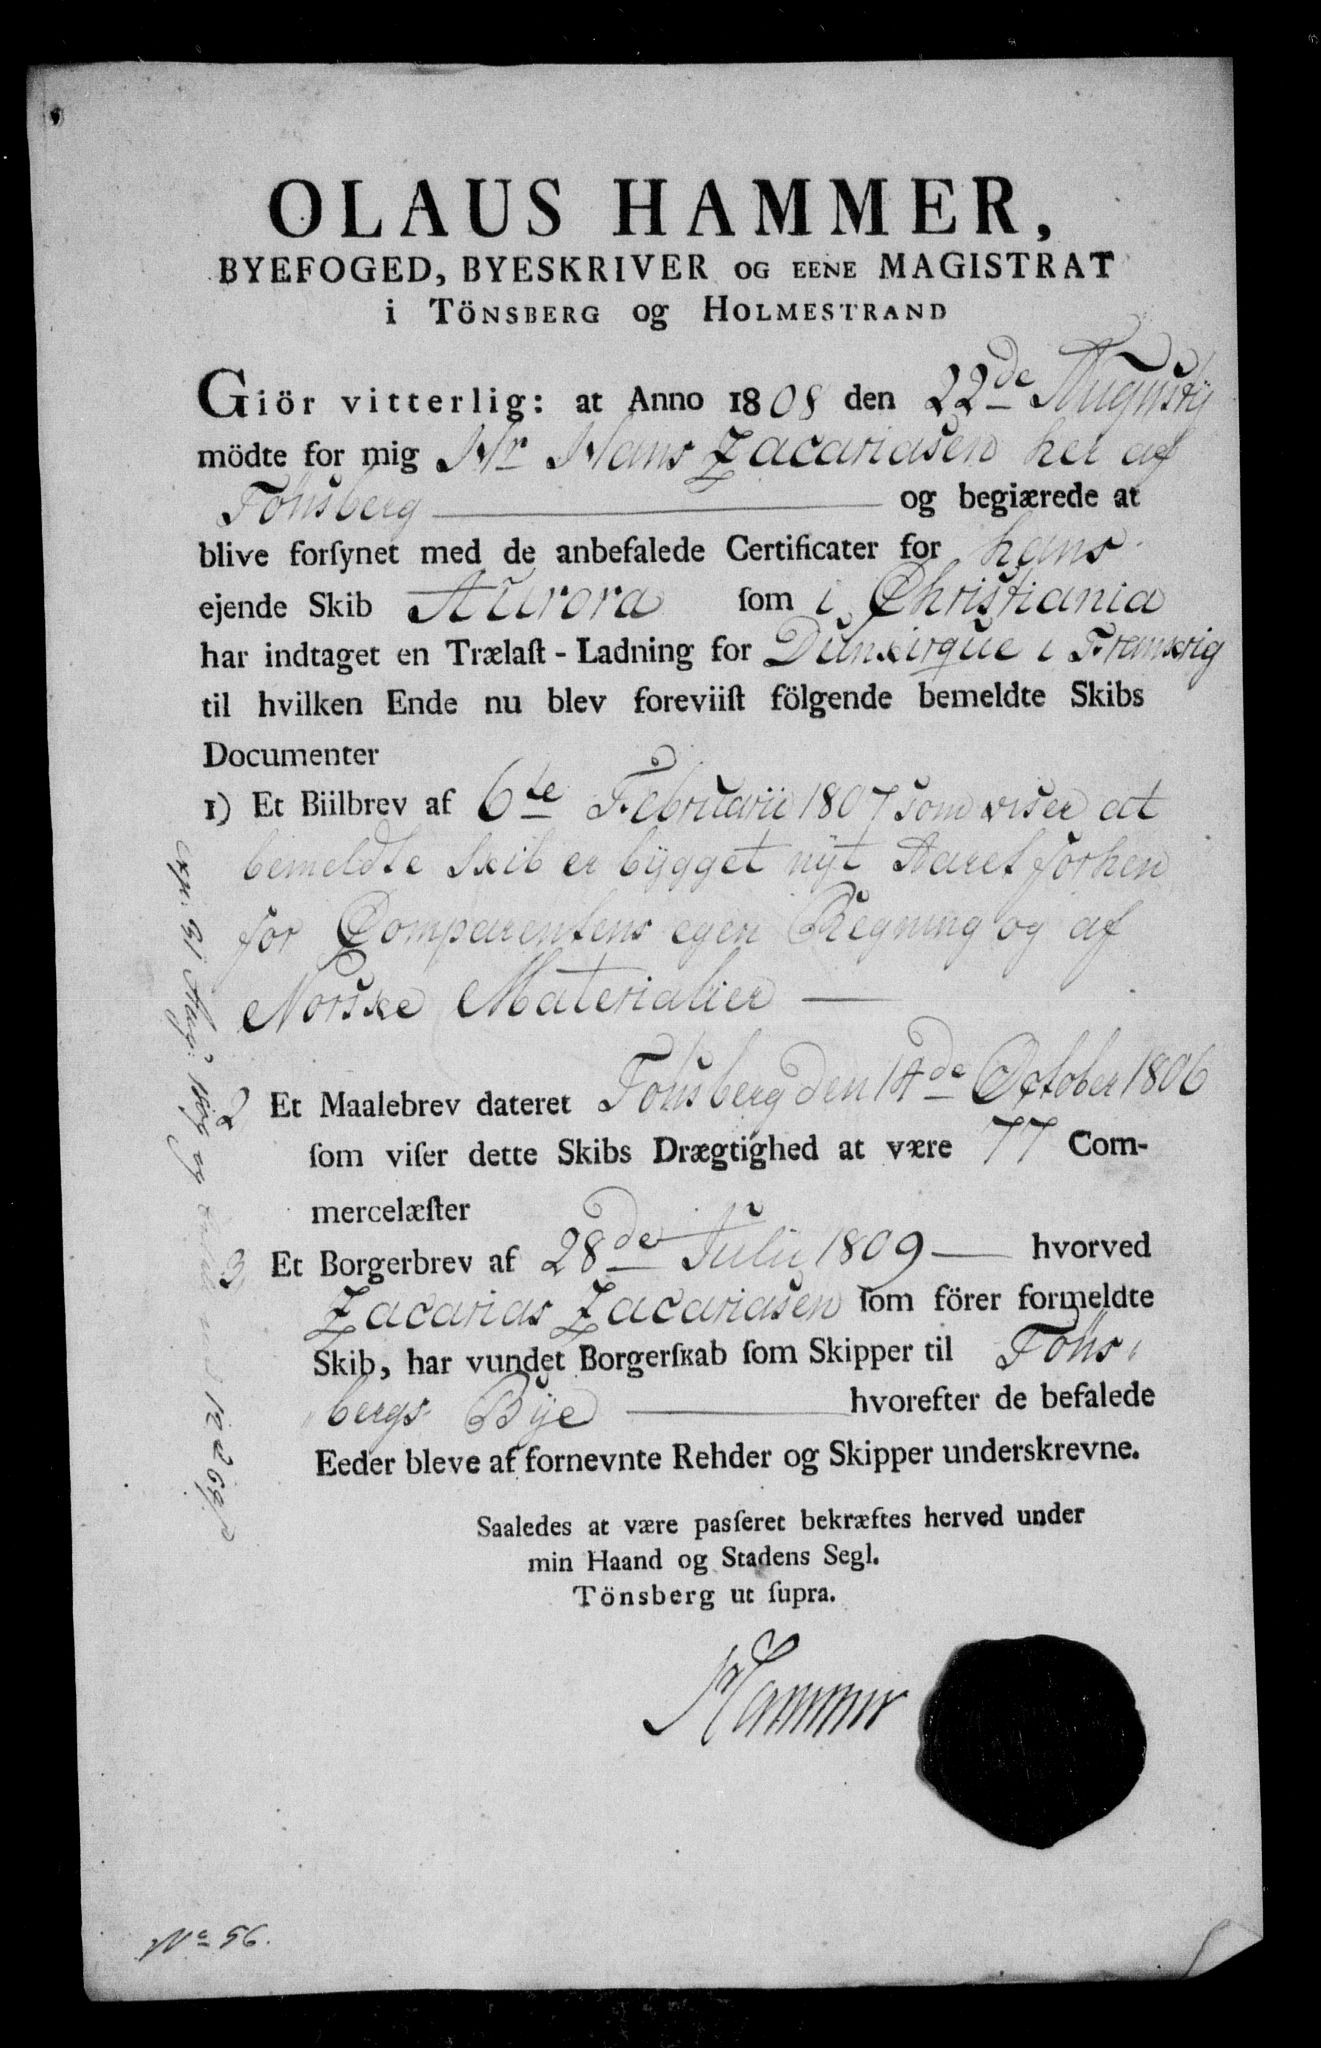 OLAUS HAMMER,
BYEFOGED, BYESKRIVER OG EENE MAGISTRAT
i TÖNSBERG og HOLMESTRAND
Giör vitterlig: at Anno 1808 den 22de Augustÿ
mödte for mig Hr Hans Zacariasen her af
Tönsberg og begiærede at
blive forſynet med de anbefalede Certificater for hans
ejende Skib Aurora ſom i Christiania
har indtaget en Trælaſt-Ladning for Dunkirque i Frankrig
til hvilken Ende nu blev foreviiſt fölgende bemeldte Skibs
Documenter
1) Et Biilbrev af 6te Februarii 1807 som viser at
bemeldte Skib er bÿgget nÿt Aaret forhen
for Comparentens egen Regning og af
Norske Materialier
2 Et Maalebrev dateret Tönsberg den 14de October 1806
ſom viſer dette Skibs Drægtighed at være 77 Com-
mercelæſter
3. Et Borgerbrev af 28de Julii 1809 hvorved
Zacarias Zacariasen ſom förer formeldte
Skib, har vundet Borgerſkab ſom Skipper til Töns
bergs Bÿe hvorefter de befalede
Eeder bleve af fornevnte Rehder og Skipper underskrevne.
Saaledes at være pasſeret bekræftes herved under
min Haand og Stadens Segl.
Tönsberg ut ſupra.
Hammer
exp: 31 Aug: og
No 56.